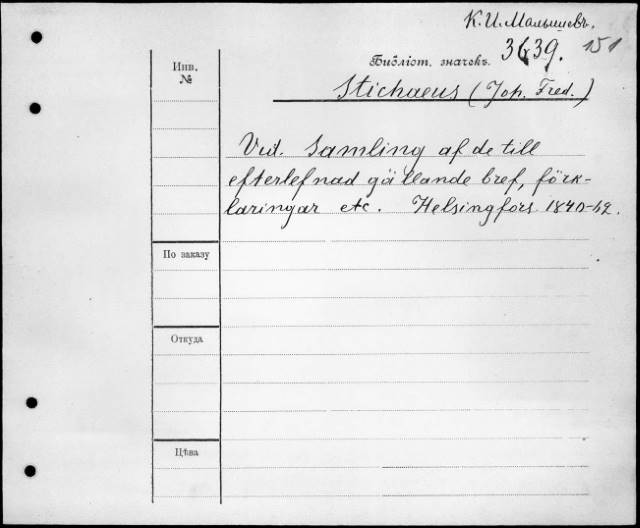 К. И. Малышевъ.
3639. 151
Инв.
№
Библіот. значекъ.
Stichaeus (Joh. Fred.)
Vid. Samling af de till
efterlefnad gällande bref, förk-
laringar etc. Helsingfors 1840-42.
По заказу
Откуда
Цѣна